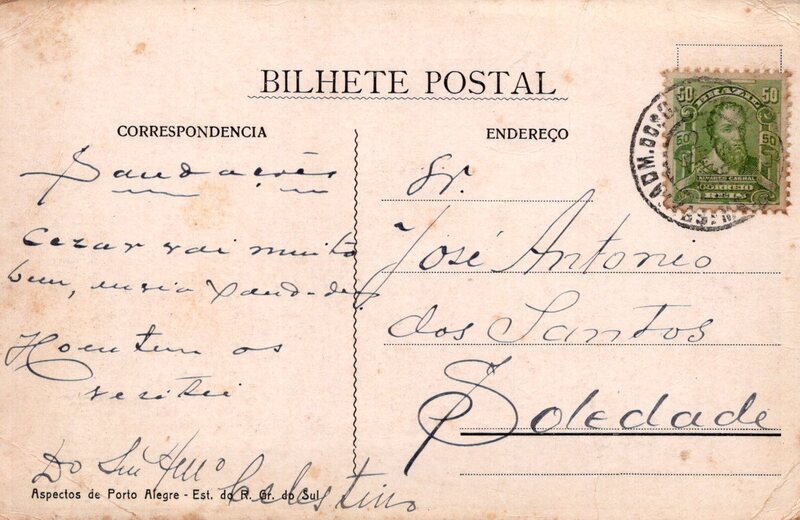 BILHETE POSTAL
CORRESPONDENCIA
Saudações
Cezar vai muito
bem, envia saudades
Hontem os
vesitei
Do Seu
Celestino
Aspectos de Porto Alegre - Est. do R. Gr. do Sul
ENDEREÇO
Sr.
José Antonio
dos Santos
Soledade
50 BRAZIL 50
50 50
ALVARES CABRAL
CORREIO
REIS
ADM. DOS